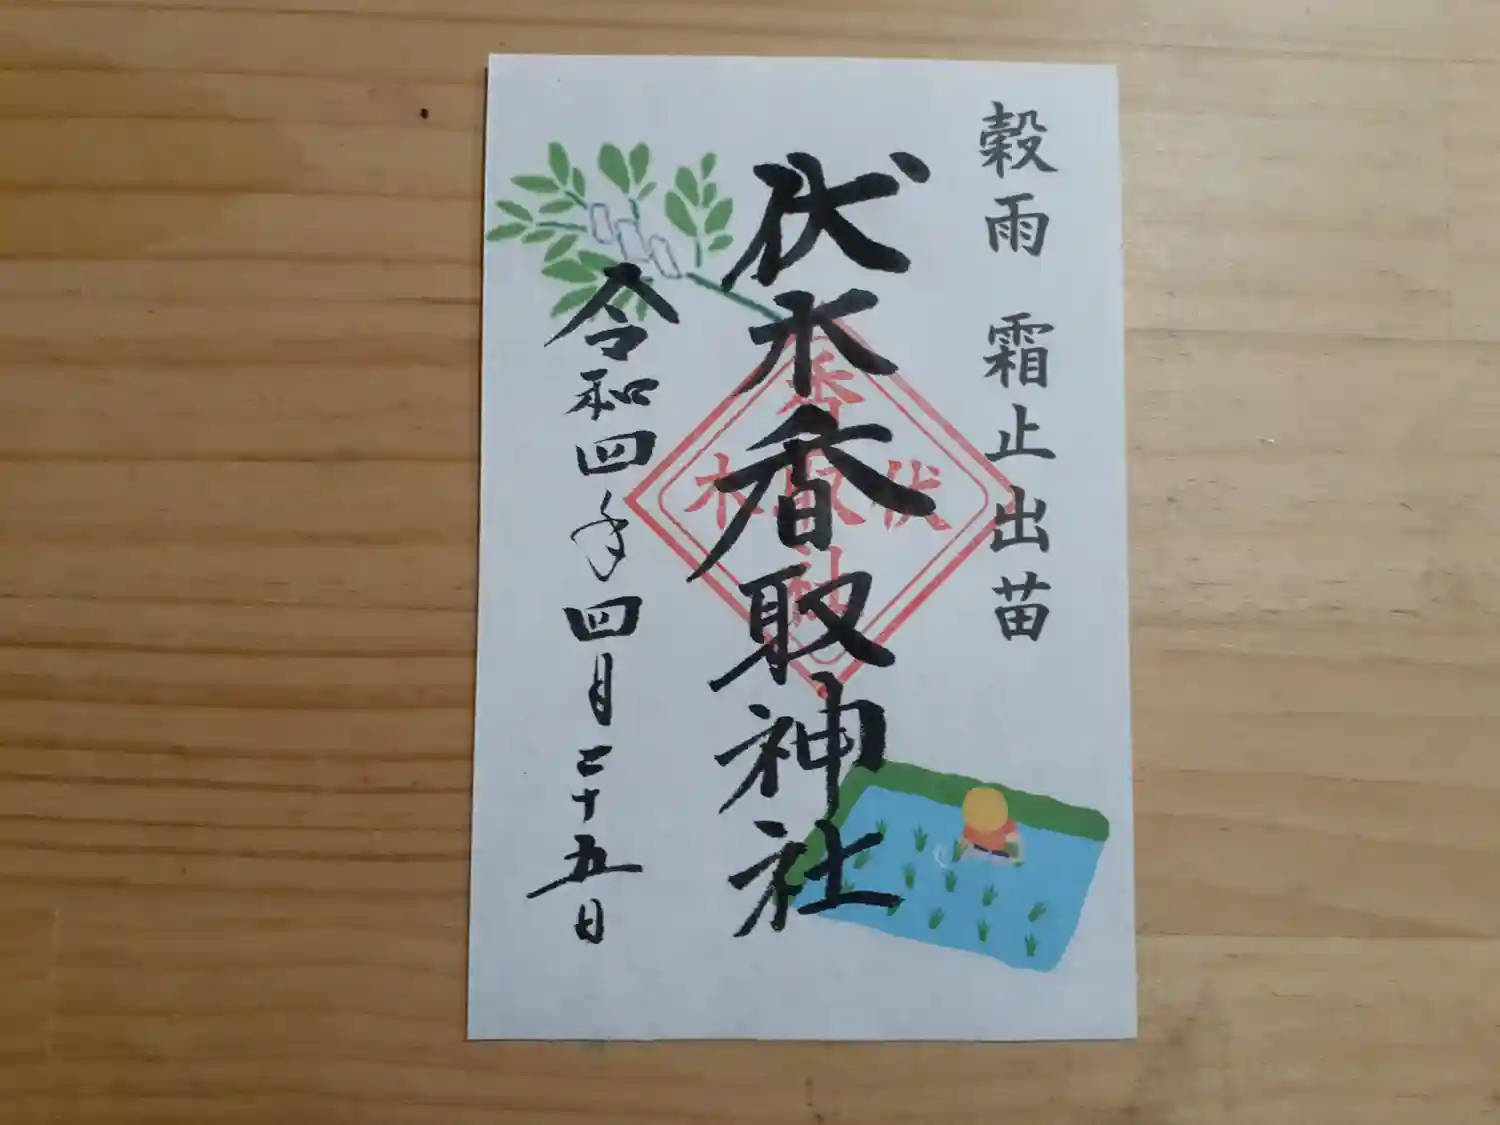 穀雨 霜止出苗
伏木香取神社
令和四年四月二十五日
伏木
香取